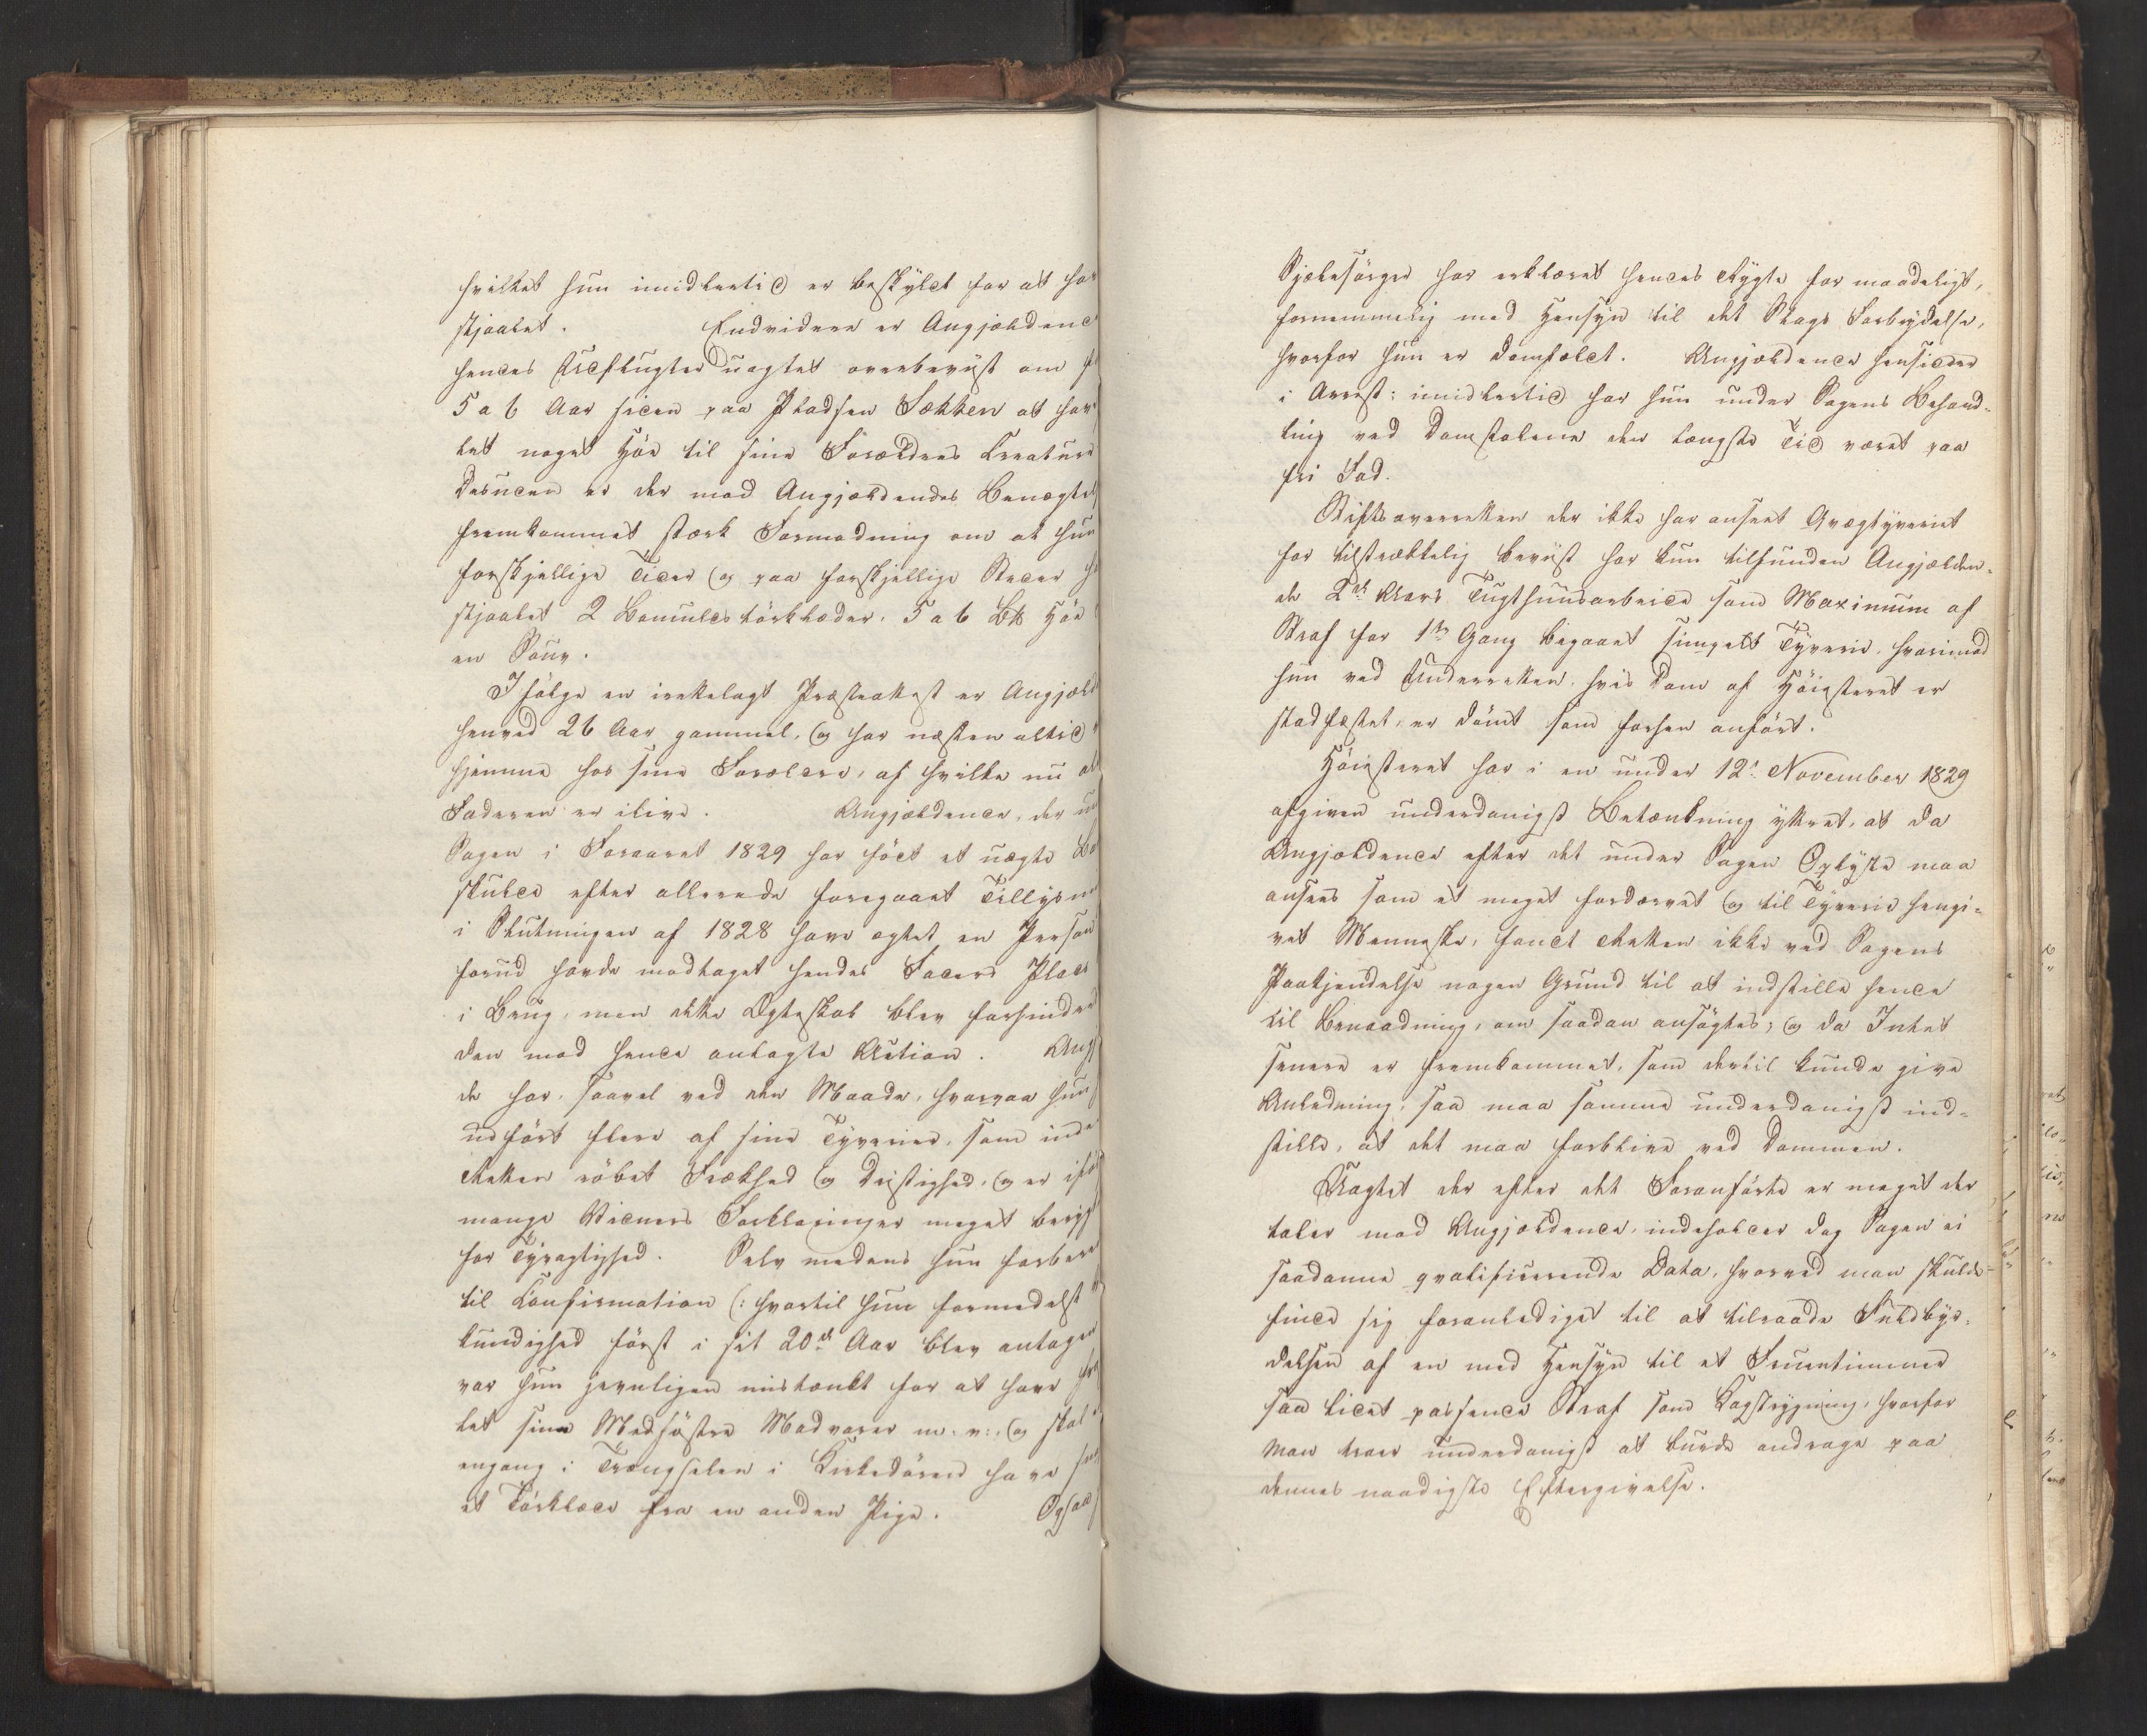 hvilket hun imidlertid er beskyldt for at hav
stjaalet. Endvidere er Angjældende
hendes Udflugter uagtet overbeviist om f
5 a 6 Aar siden paa Pladsen Sækken at hav
let noget Höe til sine Forældres Creature
Desuden er der mod Angjældendes Benægtel
fremkommet stærk Formodning om at hun
forskjellige Tider og paa forskjellige Steder h
stjaalet 2 Bomuldstörklæder, 5 a 6 B℔ Höe
en Sour.
Ifölge en irettelagt Præsteattest er Angjæld
henved 26 Aar gammel, og har næsten altid
hjemme hos sine Forældre, af hvilke nu al
Faderen er ilive. Angjældende, der un
Sagen i Foraaret 1829 har födt et uægte Ba
skulde efter allerede foregaaet Tillysn
i Slutningen af 1828 have ægtet en Person
forud havde modtaget hendes Faders Plads
i Brug, men dette Ægteskab blev forhindre
den mod hende anlagte Action. Ang
de har, saavel ved den Maade, hvorpaa hun
udfört flere af sine Tyverier, som inde
Retten röbet Frækhed og Dristighed, og er iföl
mange Vidners Forklaringer meget beryg
for Tyvagtighed. Selv medens hun forbere
til Confirmation (: hvortil hun formedelst
kundighed först i sit 20de Aar blev antagen
var hun jevnligen mistænkt for at have fra
let sine Medsöstre Madvarer m. v:, og skal
engang i Trængselen i Kirkedören have
et Törklæde fra en anden Pige. Ogsaa
Sjælesörger har erklæret hendes Rygte for maadeligt,
fornemmelig med Hensyn til det Slags Forbrydelse,
hvorfor hun er domfældt. Angjældende hensidder
i Arrest; imidlertid har hun under Sagens Behand-
ling ved Domstolene den længste Tid været paa
fri Fod.
Stiftsoverretten der ikke har anseet Qvægtyveriet
for tilstrækkelig beviist har kun tilfunden Angjælden-
de 2de Aars Tugthuusarbeide som Maximum af
Straf for 1ste Gang begaaet simpelt Tyverie, hvorimod
hun ved Underretten, hvis Dom af Höiesteret er
stadfæstet, er dömt som forhen anfört.
Höiesteret har i en under 12te November 1829
afgiven underdanigst Betænkning yttret, at da
Angjældende efter det under Sagen Oplyste maa
ansees som et meget fordærvet og til Tyverie hengi-
vet Menneske, fandt Retten ikke ved Sagens
Paakjendelse nogen Grund til at indstille hende
til Benaadning, om saadan ansögtes; og da Intet
senere er fremkommet, som dertil kunde give
Anledning, saa maa samme underdanigst ind-
stille, at det maa forblive ved Dommen.
Uagtet der efter det Foranförte er meget der
taler mod Angjældende, indeholder dog Sagen ei
saadanne qvalificerende Data, hvorved man skulde
finde sig foranlediget til at tilraade Fuldbyr-
delsen af en med Hensyn til et Fruentimmer
saa lidet passende Straf som Kagstrygning, hvorfor
man troer underdanigst at burde andrage paa
dennes naadigste Eftergivelse.